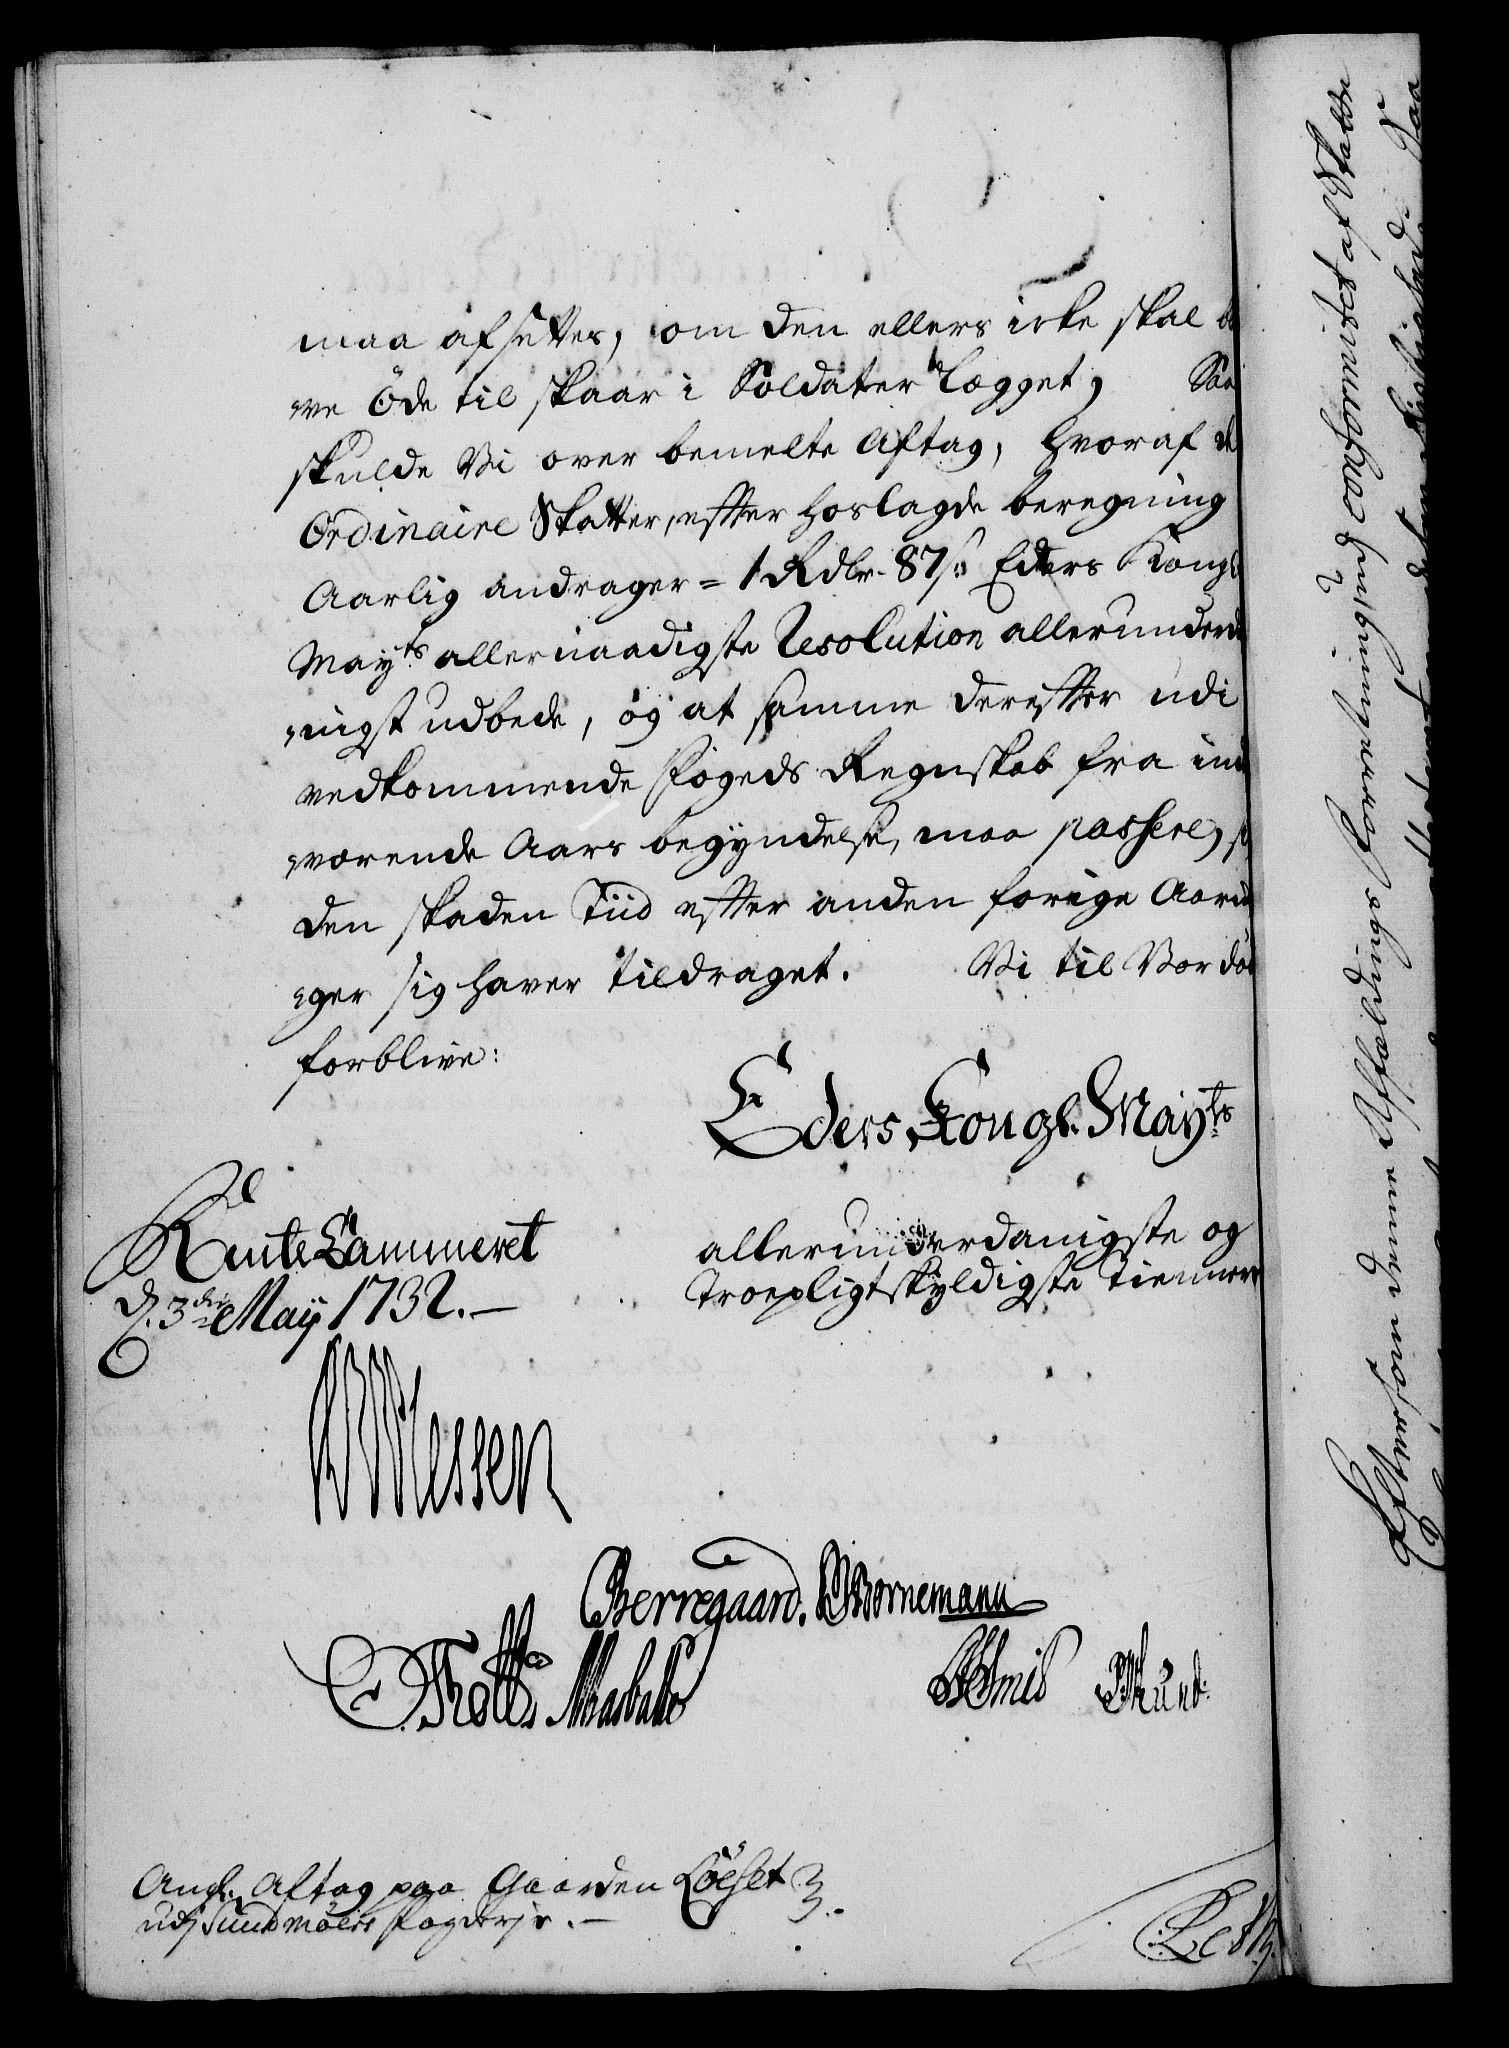 maa afsættes, om den ellers icke skal b
„ve Öde til skaar i Soldater Lægget; Saa
skulde Vi over bemelte Aftag, hvoraf de
Ordinaire Skatter, efter hoslagde beregning
Aarlig andrager = 1 Rdlr. 87 ß: Eders Kongl
Mayts allernaadigste Resolution allerunderd
„nigst udbede, og at samme derefter udi
vedkommende Fogeds Regnskab fra ind
„værende Aars begyndelse, maa passere, s
den skaden Tiid efter anden forige Aarin
„ger sig haver tildraget. Vi til Vor död
forblive:
Eders Kongl. Mayts
allerunderdanigste og
Troepligtskyldigste Tienere
RenteCammeret
d. 3die Maij 1732.—
Berregaard. Bornemann
Tholts
Ang. Aftag paa Gaarden Löeset
udj Sundmöers Fogderje.—
Eftersom denne Affældings Forretning, conformitet af Skatte